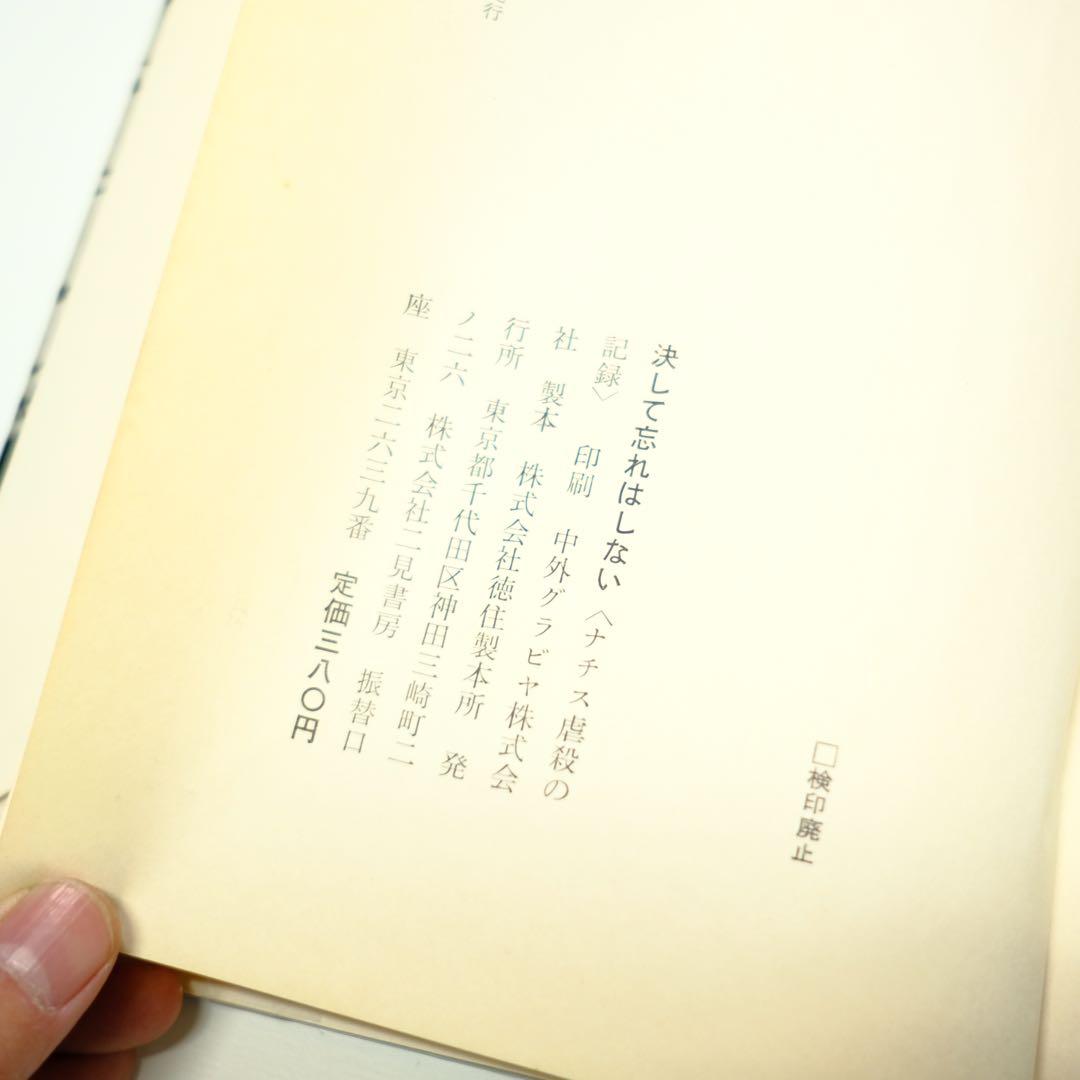 □検印廃止
決して忘れはしない〈ナチス虐殺の
記録〉 印刷 中外グラビヤ株式会
社 製本 株式会社徳住製本所 発
行所 東京都千代田区神田三崎町二
ノ二六 株式会社二見書房 振替口
座 東京二六三九番 定価三八〇円
行